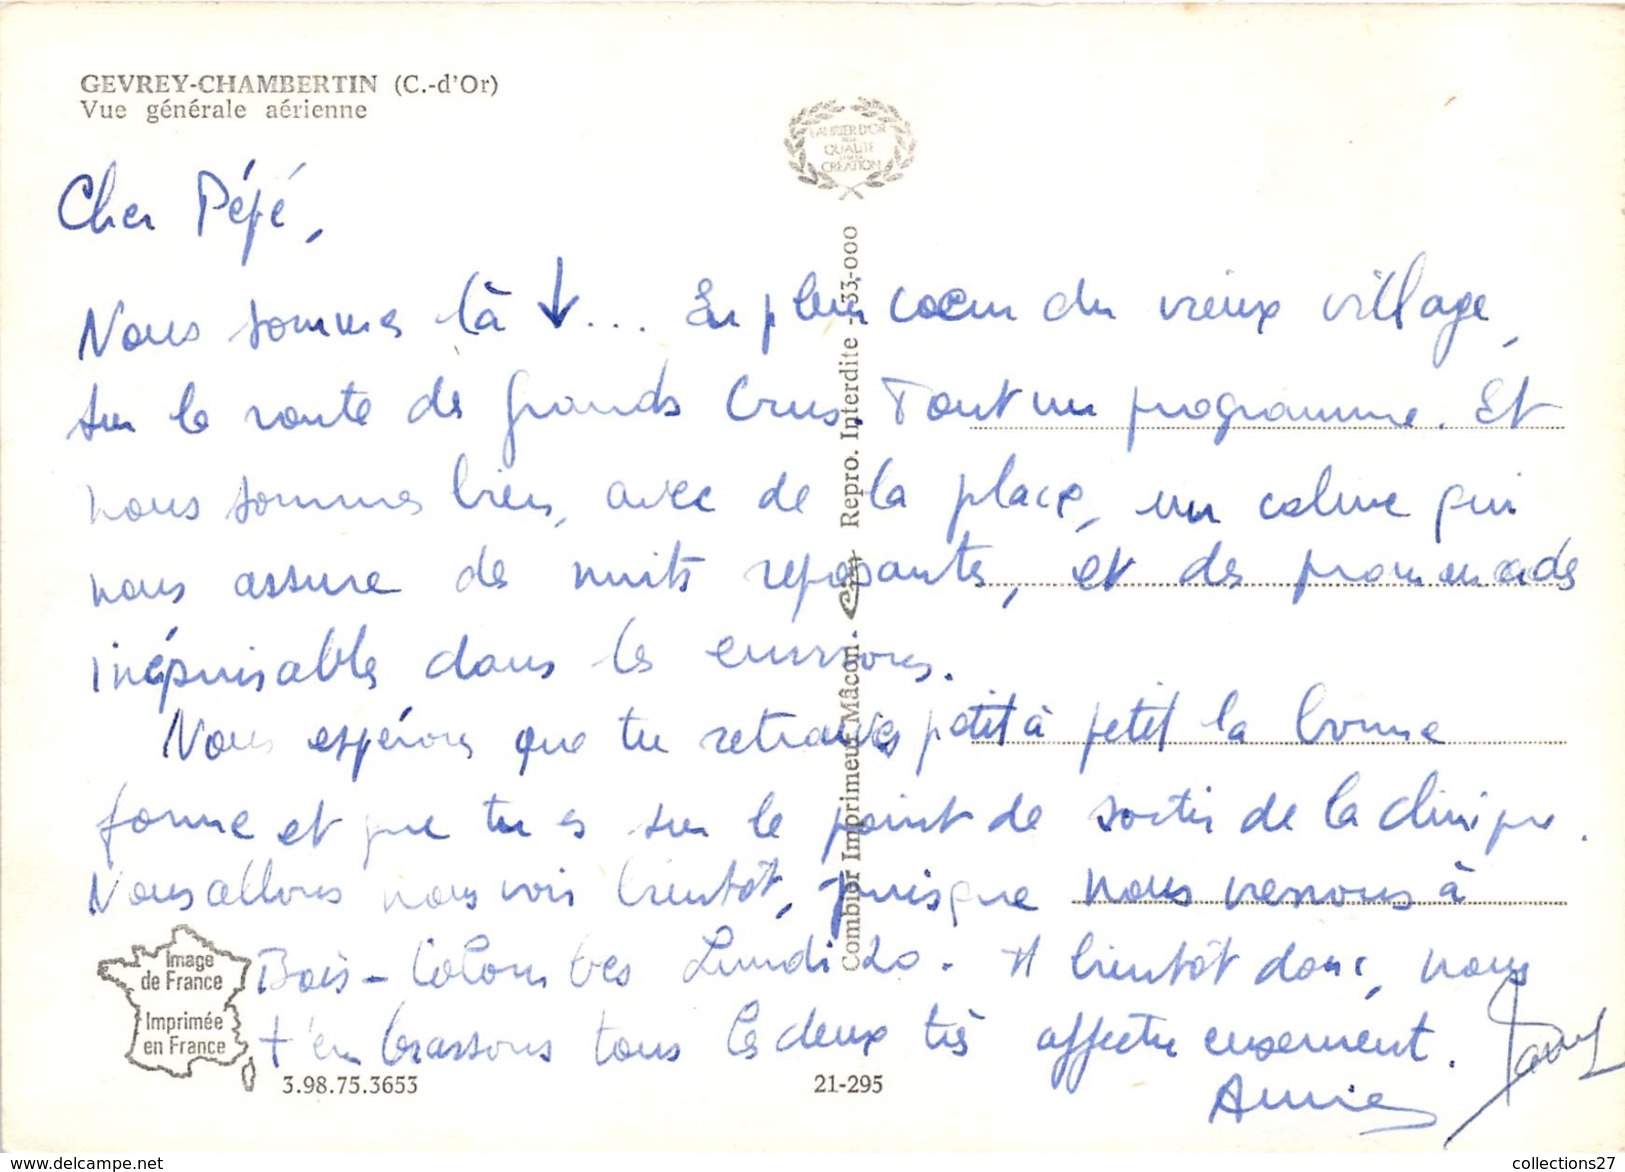 GEVREY-CHAMBERTIN (C.-d'Or)
Vue générale aérienne
LAURIER D'OR
QUALITÉ
CRÉATION
Cher Pépé,
Nous sommes là ↓... En plein coeur du vieux village,
sur la route des grands Crus. Tout un programme. Et
nous sommes bien, avec de la place, un calme qui
nous assure des nuits reposantes, et des promenades
inépuisables dans les environs.
Nous espérons que tu retrouves petit à petit la bonne
forme et que tu es sur le point de sortir de la clinique.
Nous allons nous voir bientôt, puisque nous venons à
Bois-Colombes Lundi 20. A bientôt donc, nous
t'embrassons tous les deux très affectueusement.
Annie
Combier Imprimeur Mâcon. Cim Repro. Interdite - 33-000
Image
de France
Imprimée
en France
3.98.75.3653
21-295
collections27